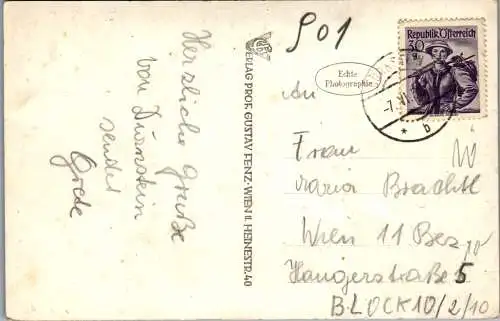 901
Republik Österreich
30
g
Echte
Photographie
-7.
* b
VERLAG PROF. GUSTAV FENZ-WIEN II. HEINESTR. 40
Herzliche Grüße
von Dürnstein
sendet
Grete
An
Frau W
Maria Brachtl
Wien 11 Bez
Hangerstraße 5
BLOCK 10/2/10